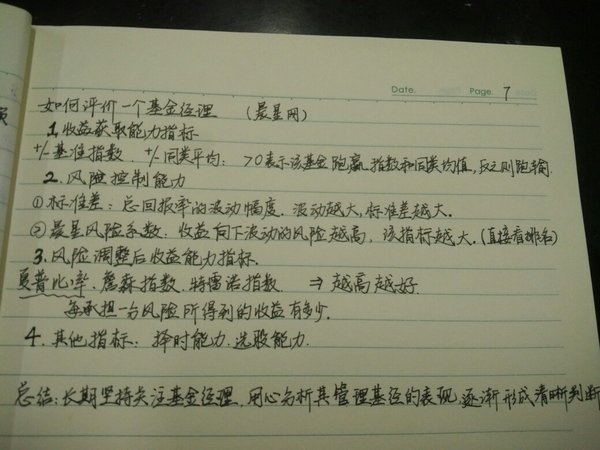 Date. Page. 7
如何评价一个基金经理 (晨星网)
1.收益获取能力指标
+/-基准指数. +/-同类平均: >0表示该基金跑赢指数和同类均值,反之则跑输.
2.风险控制能力
①标准差: 总回报率的波动幅度. 波动越大,标准差越大.
②晨星风险系数: 收益向下波动的风险越高, 该指标越大.(直接看排名)
3.风险调整后收益能力指标.
夏普比率. 詹森指数. 特雷诺指数. ⇒ 越高越好.
每承担一分风险所得到的收益有多少.
4.其他指标: 择时能力. 选股能力.
总结:长期坚持关注基金经理, 用心分析其管理基经的表现,逐渐形成清晰判断